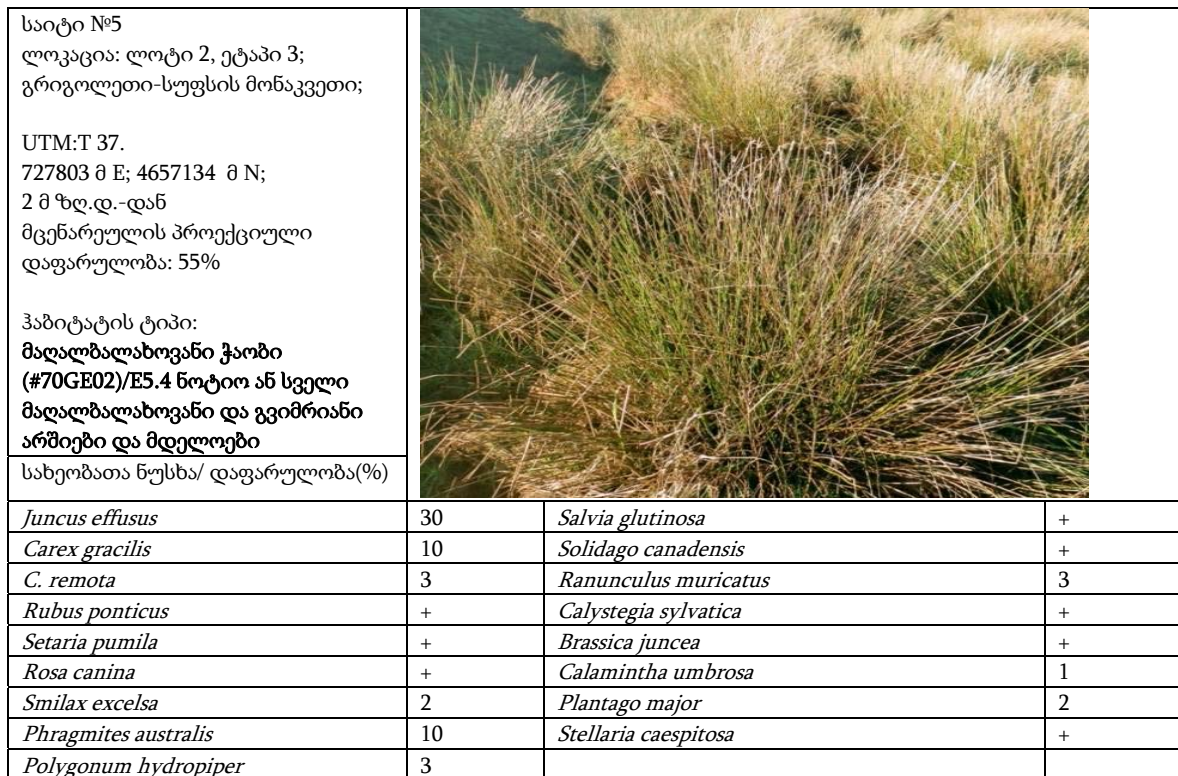 საიტი №5
ლოკაცია: ლოტი 2, ეტაპი 3;
გრიგოლეთი-სუფსის მონაკვეთი;
UTM:T 37.
727803 მ E; 4657134 მ N;
2 მ ზღ.დ.-დან
მცენარეულის პროექციული
დაფარულობა: 55%
ჰაბიტატის ტიპი:
მაღალბალახოვანი ჭაობი
(#70GE02)/E5.4 ნოტიო ან სველი
მაღალბალახოვანი და გვიმრიანი
არშიები და მდელოები
სახეობათა ნუსხა/ დაფარულობა(%)
Juncus effusus 30 Salvia glutinosa +
Carex gracilis 10 Solidago canadensis +
C. remota 3 Ranunculus muricatus 3
Rubus ponticus + Calystegia sylvatica +
Setaria pumila + Brassica juncea +
Rosa canina + Calamintha umbrosa 1
Smilax excelsa 2 Plantago major 2
Phragmites australis 10 Stellaria caespitosa +
Polygonum hydropiper 3